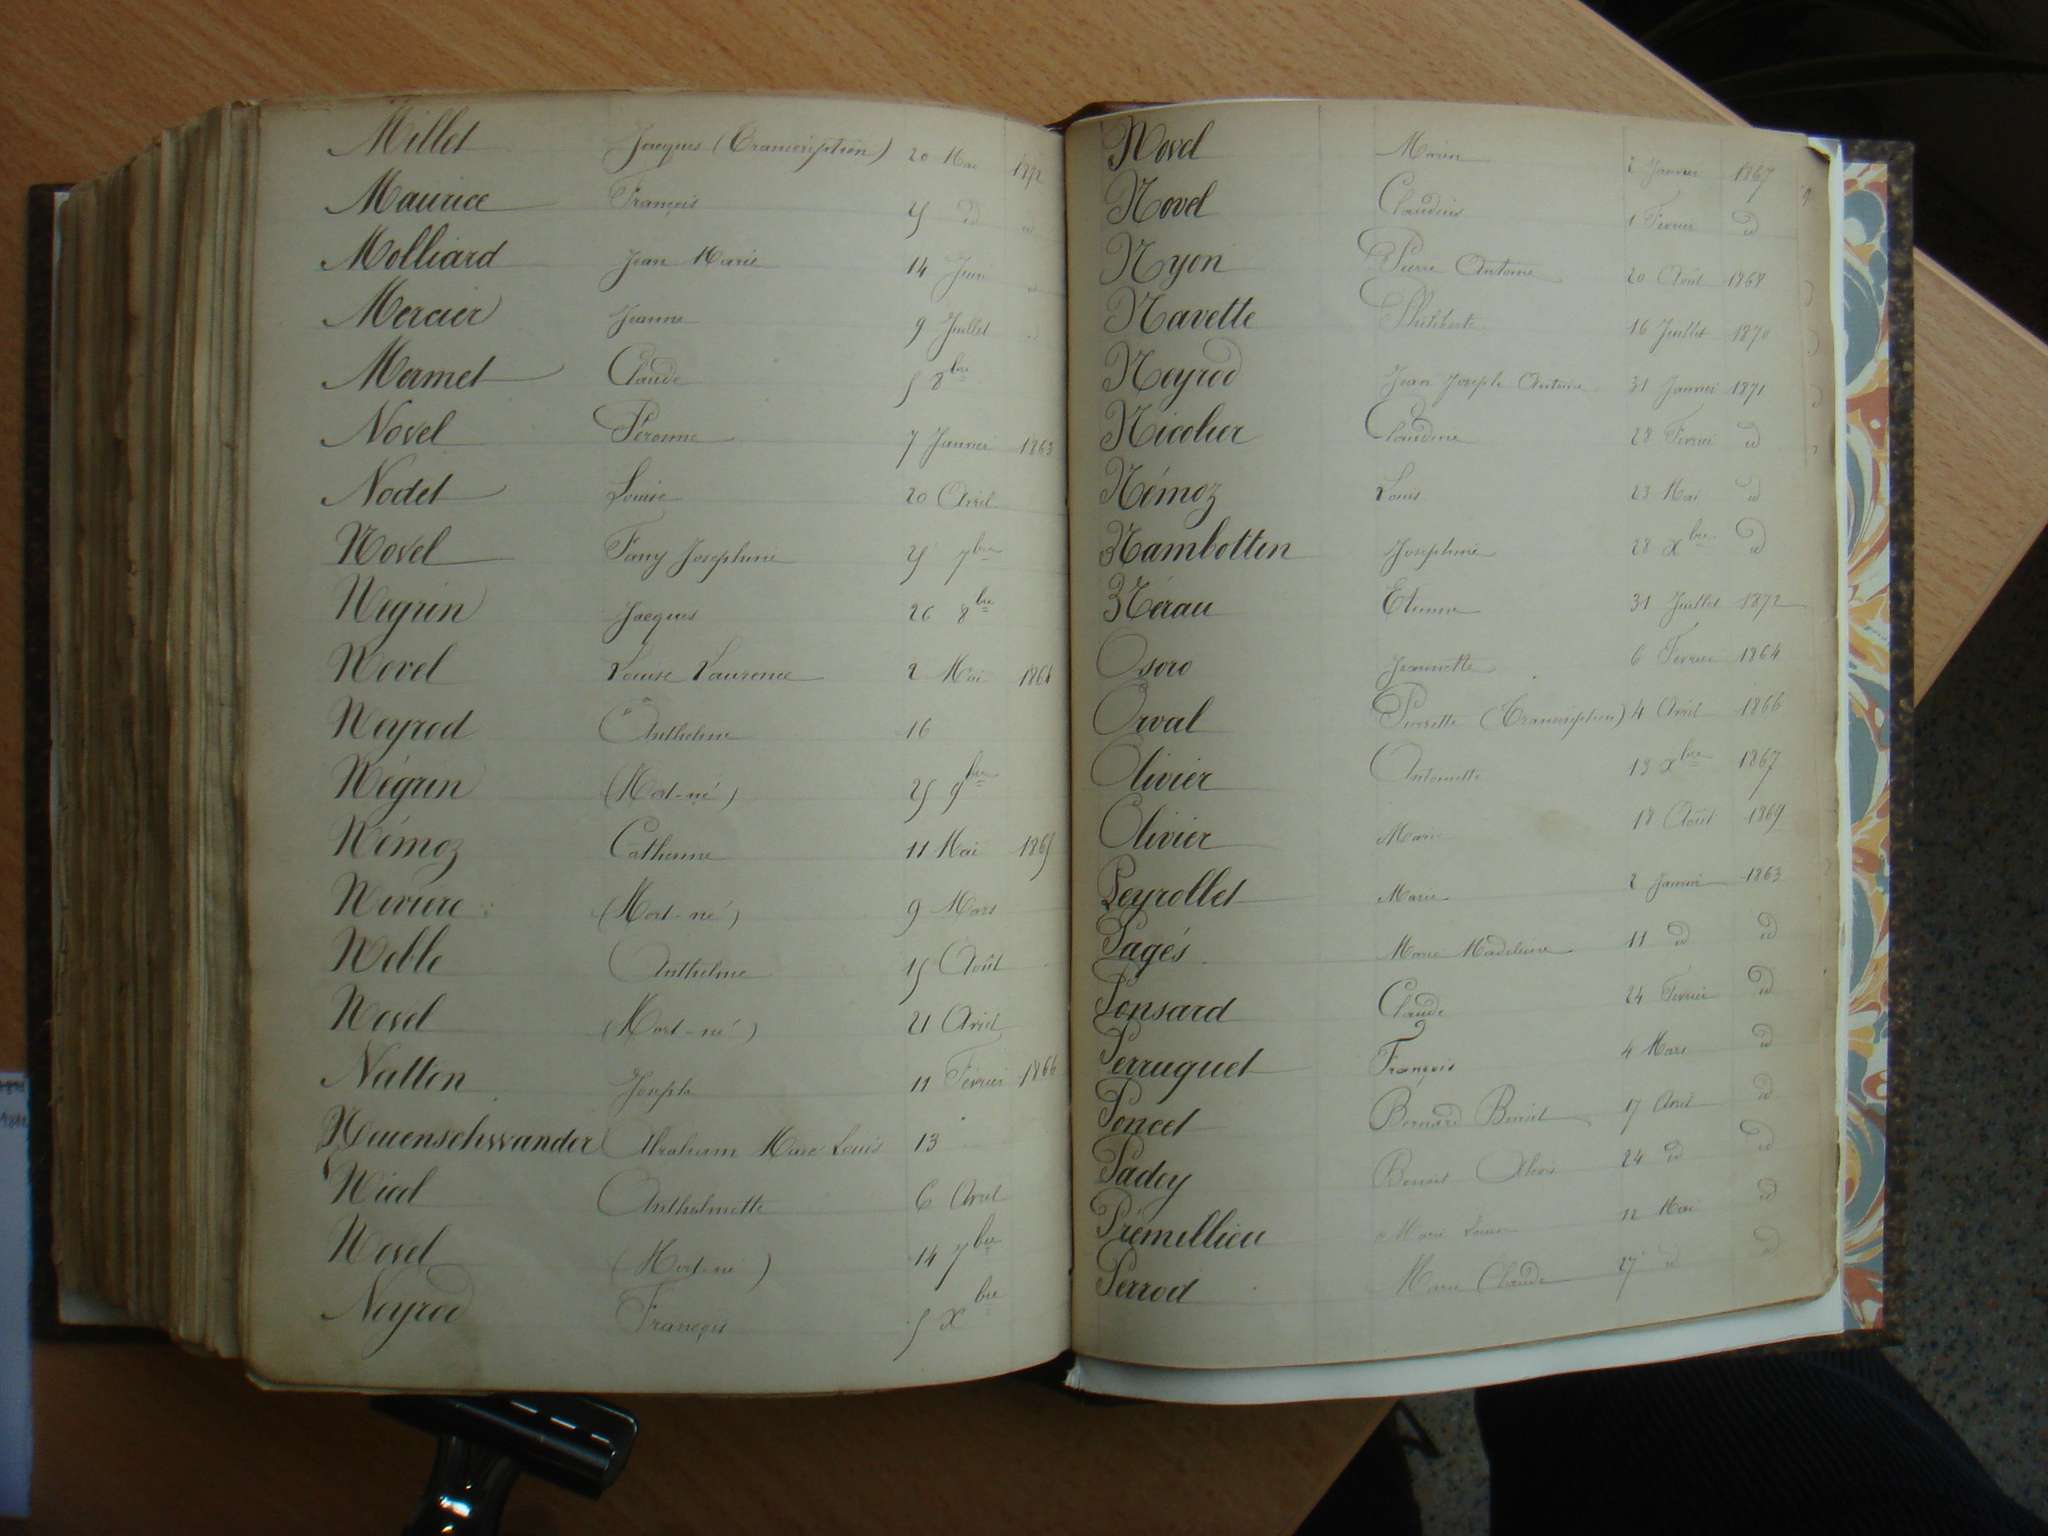 Millet Jacques (Transcription) 20 Mai 1872
Maurice François 25 d° d°
Molliard Jean Marie 14 Juin
Mercier Jeanne 9 Juillet
Mermet Claude 5 8bre
Novel Péronne 7 Janvier 1863
Nodet Louise 20 Avril
Novel Fany Josephine 25 7bre
Negrin Jacques 26 8bre
Novel Louise Laurence 2 Mai 1864
Neyrod Anthelme 16
Négrin (Mort-né) 25 9bre
Némoz Catherine 11 Mai 1865
Neviere (Mort-né) 9 Mars
Neble Anthelme 15 Août
Novel (Mort-né) 21 Avril
Natton Joseph 11 Février 1866
Neuenschwander Abraham Marc Louis 13
Nicol Anthelmette 6 Avril
Novel (Mort-né) 14 7bre
Neyrod François 5 Xbre
Novel Marin 2 Janvier 1867
Novel Claudius 1 Fevrier d
Nyon Pierre Antoine 20 Août 1868
Navette Philiberte 16 Juillet 1870
Neyrod Jean Joseph Antoine 31 Janvier 1871
Nicolier Claudine 28 Fevrier d
Némoz Louis 23 Mai d
Nambotten Josephine 28 Xbre d
Nérau Etienne 31 Juillet 1872
Osoro Jeannette 6 Fevrier 1864
Orval Pierrette (Transcription) 4 Avril 1866
Olivier Antoinette 13 Xbre 1867
Olivier Marie 18 Août 1869
Peyrollet Marie 2 Janvier 1863
Pagés Marie Madeleine 11 d d
Ponsard Claude 24 Fevrier d
Perruquet François 4 Mars d
Poncet Bernard Benoit 17 Avril d
Padey Benoit Alexis 24 d d
Prémillieu Marie Louise 12 Mai d
Perrod Marie Claude 27 d d